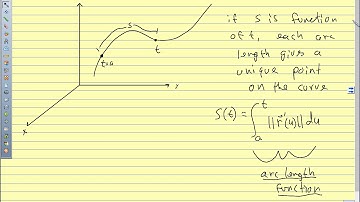 if s is function
of t, each arc
length gives a
unique point
on the curve
s
t=a
t
x
y
s(t) = ∫ₐᵗ ||r⃗'(u)|| du
arc length
function